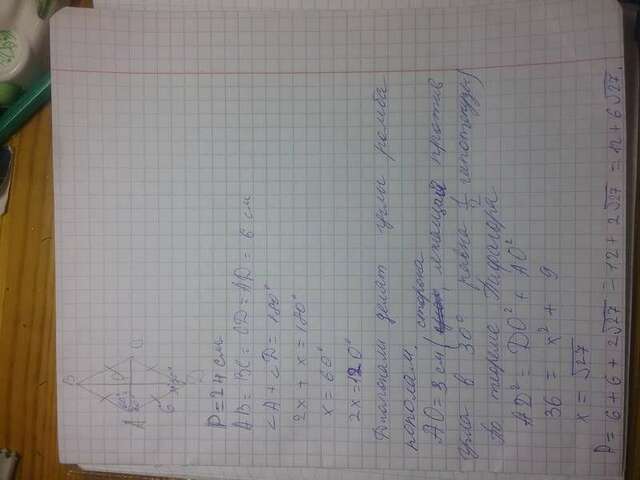 B
A
O
C
6
D
P = 24 см
AB = BC = CD = AD = 6 см
∠A + ∠D = 180°
2x + x = 180°
x = 60°
2x = 120°
Диагонали делят углы ромба
пополам.
AO = 3 см (сторона, лежащая против
угла в 30° равна 1/2 гипотенузы)
По теореме Пифагора
AD² = DO² + AO²
36 = x² + 9
x = √27
P = 6 + 6 + 2√27 = 12 + 2√27 = 12 + 6√27.